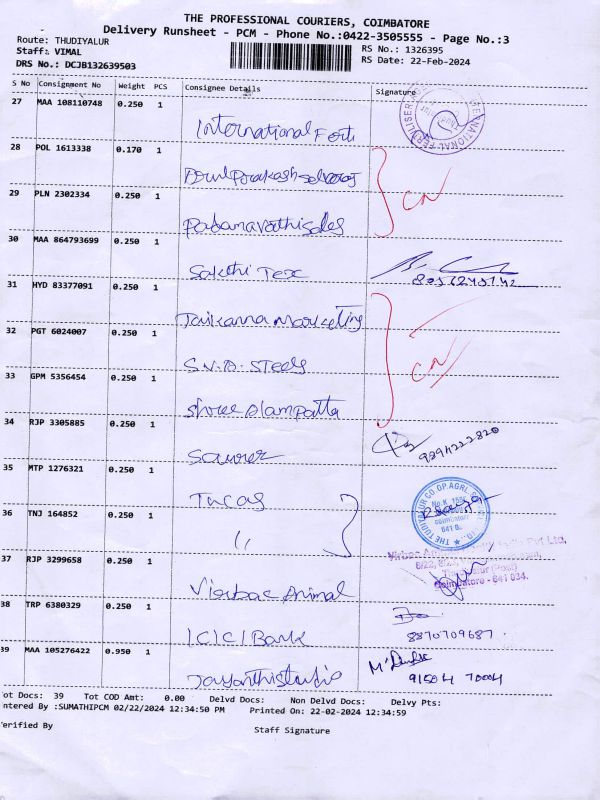 THE PROFESSIONAL COURIERS, COIMBATORE
Delivery Runsheet - PCM - Phone No.:0422-3505555 - Page No.:3
Route: THUDIYALUR RS No.: 1326395
Staff: VIMAL RS Date: 22-Feb-2024
DRS No.: DCJB132639503
S No Consignment No Weight PCS Consignee Details Signature
27 MAA 108110748 0.250 1
International Ferti
28 POL 1613338 0.170 1
29 PLN 2302334 0.250 1
CN
Padamavathi sales
30 MAA 864793699 0.250 1
Sakthi Tex
31 HYD 83377091 0.250 1
Jaikanna marketing
32 PGT 6024007 0.250 1
S.N.D. Steels
CN
33 GPM 5356454 0.250 1
Shree Alampatta
34 RJP 3305885 0.250 1
Saurer 9894222820
35 MTP 1276321 0.250 1
Tucas
THE TUDIYALUR CO.OP.AGRL.
36 TNJ 164852 0.250 1
"
Coimbatore
641 0
37 RJP 3299658 0.250 1
Virbac Animal
Coimbatore - 641 034.
38 TRP 6380329 0.250 1
ICICI Bank 8870709687.
39 MAA 105276422 0.950 1
Jayanthi studio 91504 70004
ot Docs: 39 Tot COD Amt: 0.00 Delvd Docs: Non Delvd Docs: Delvy Pts:
ntered By :SUMATHIPCM 02/22/2024 12:34:50 PM Printed On: 22-02-2024 12:34:59
erified By Staff Signature